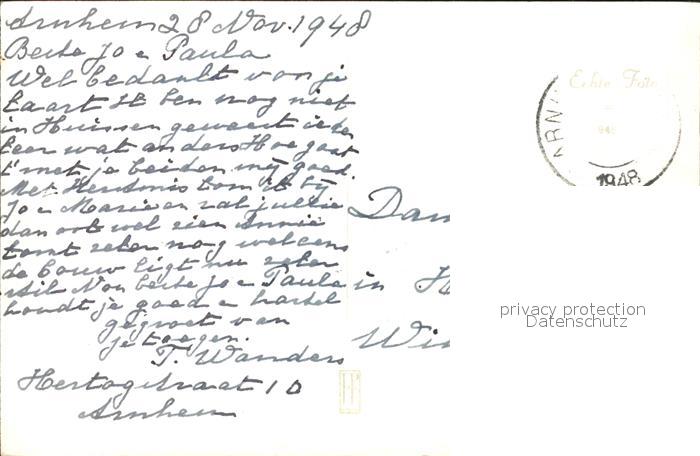 Arnhem 28 Nov. 1948
Beste Jo e Paula
Wel bedankt voor je
kaart Ik ben nog niet
in Huissen geweest ieder
keer wat anders Hoe gaat
t' met je beiden mij goed.
Met Kerstmis kom ik bij
Jo e Marie en zal jullie
dan ook wel zien Annie
komt zeker nog wel eens
de bouw ligt nu zeker
stil Nou beste Jo e Paula
houdt je goed e hartel
gegroet van
je
T. Wanders
Hertogstraat 10
Arnhem
Echte Foto
ARN
1948
Dam
in H
Wi
privacy protection
Datenschutz